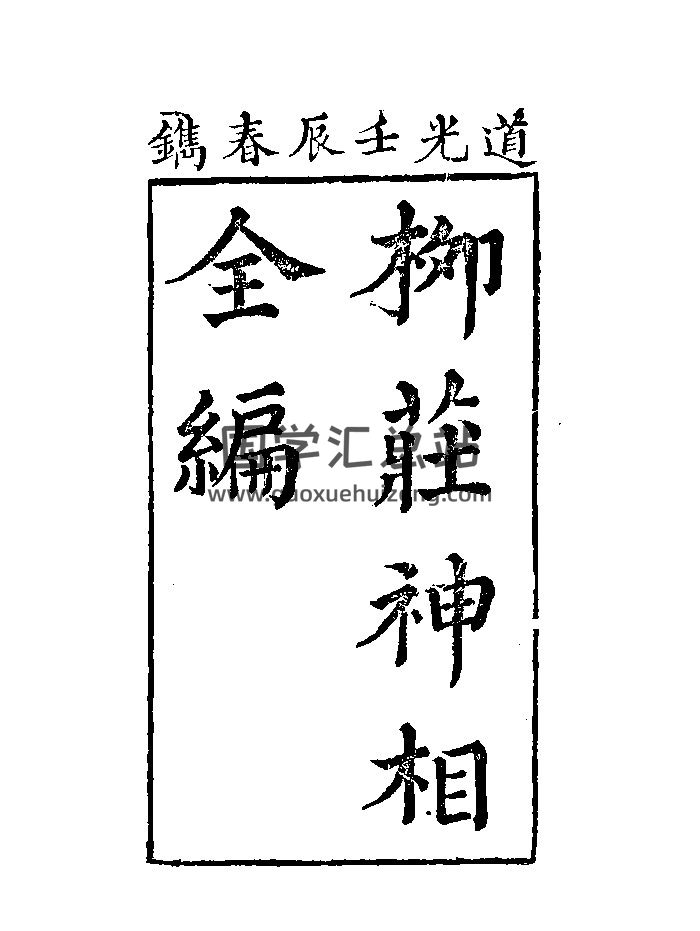 道光壬辰春鐫
柳莊神相
全編
国学汇总站
www.guoxuehuizong.com